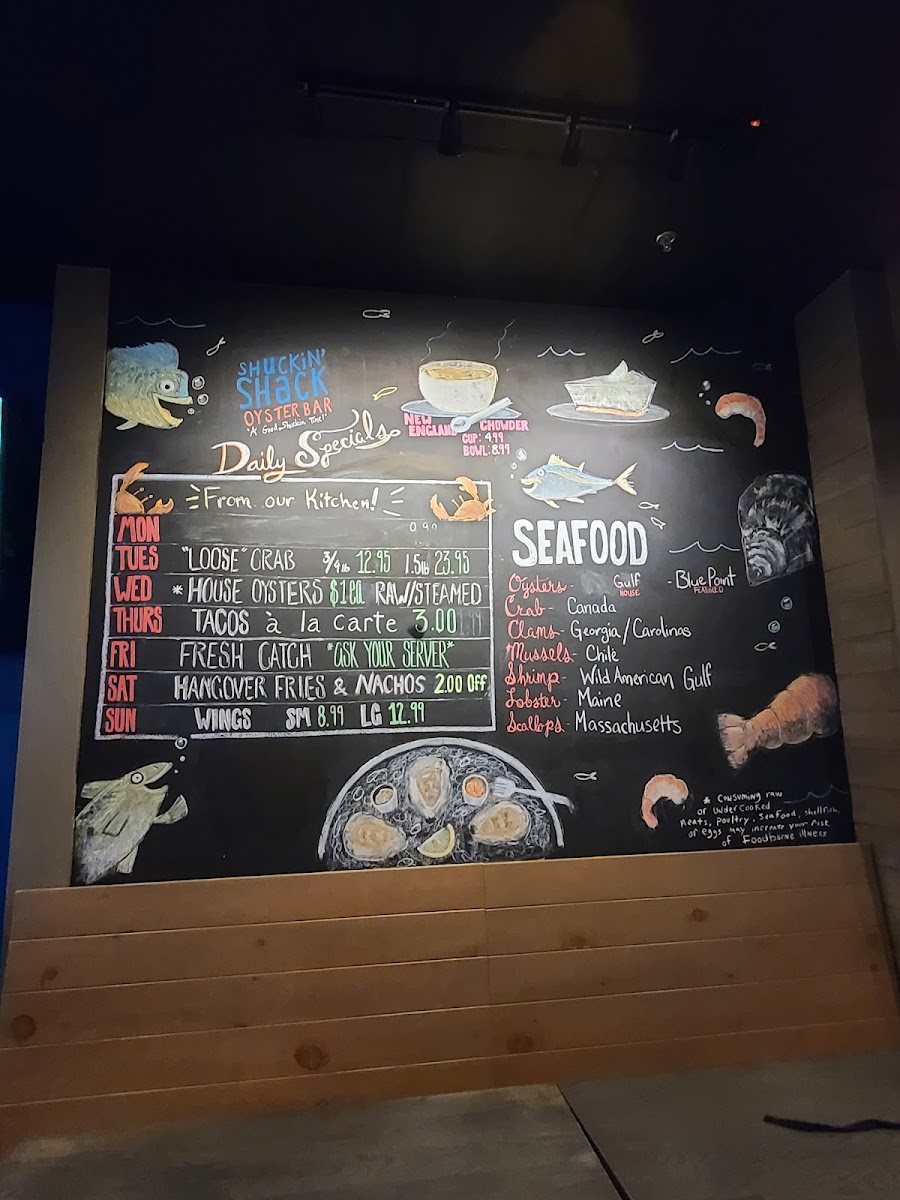 SHUCKIN'
SHACK
OYSTER BAR
"A Good Shuckin Time!"
Daily Specials
NEW ENGLAND CHOWDER
CUP: 4.99
BOWL: 8.99
From our Kitchen!
MON
TUES "LOOSE" CRAB 3/4 lb 12.95 1.5 lb 23.95
WED * HOUSE OYSTERS $1 ea RAW/STEAMED
THURS TACOS à la carte 3.00
FRI FRESH CATCH *ASK YOUR SERVER*
SAT HANGOVER FRIES & NACHOS 2.00 OFF
SUN WINGS SM 8.99 LG 12.99
SEAFOOD
Oysters - Gulf HOUSE - Blue Point FEATURED
Crab - Canada
Clams - Georgia/Carolinas
*Mussels - Chile
Shrimp - Wild American Gulf
Lobster - Maine
Scallops - Massachusetts
* Consuming raw
or undercooked
Meats, poultry, seafood, shellfish,
or eggs may increase your risk
of Foodborne illness